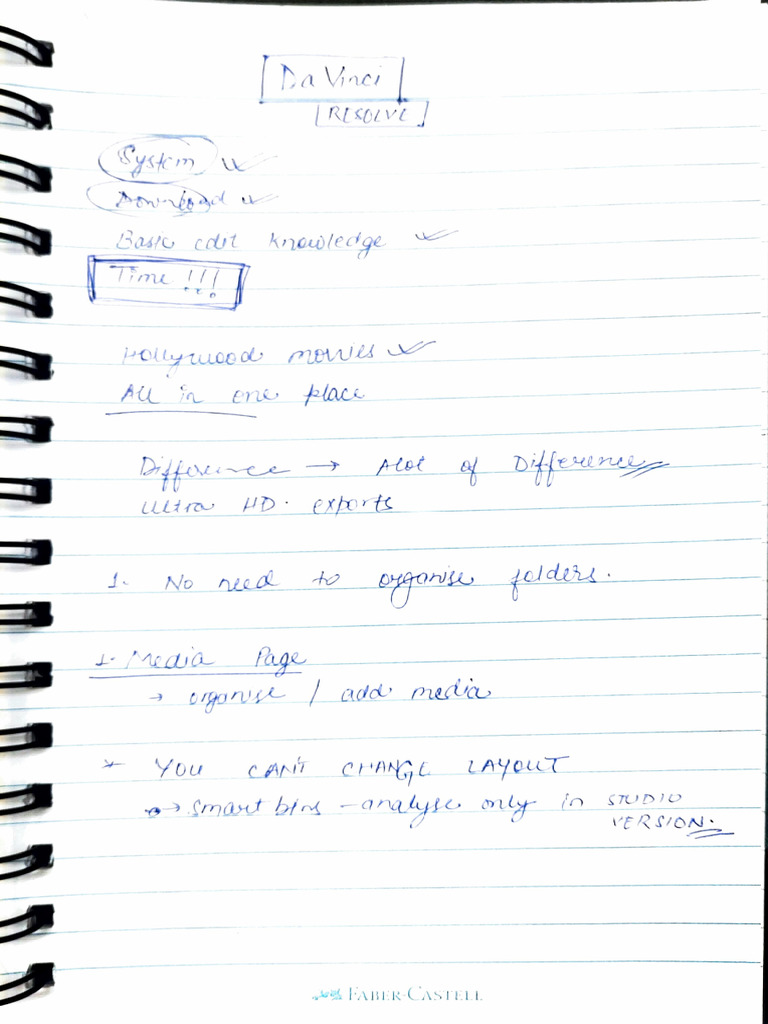 Da Vinci
RESOLVE
System
Download
Basic edit knowledge
Time !!!
Hollywood movies
All in one place
Difference → Alot of Difference
Ultra HD. exports
1. No need to organise folders.
1. Media Page
→ organise / add media
* YOU CAN'T CHANGE LAYOUT
→ smart bins - analyse only in STUDIO
VERSION.
FABER-CASTELL